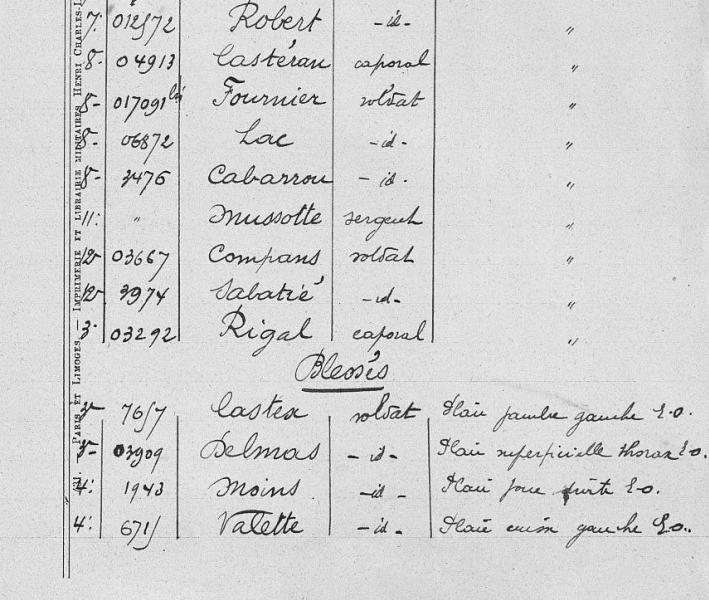 7. 012572 Robert -id- "
8- 04913 Castéran caporal "
8- 017091 bis Fournier soldat "
8- 06872 Lac -id- "
8- 3476 Cabarrou -id- "
11: " Mussotte sergent "
12- 03667 Compans soldat "
12- 3974 Sabatié -id- "
3. 03292 Rigal caporal "
Blessés
7657 Castex soldat Plaie jambe gauche E.O.
3- 03909 Delmas -id- Plaie superficielle thorax E.O.
4. 1943 Moins -id- Plaie joue droite E.O.
4. 6715 Valette -id- Plaie cuisse gauche E.O.
PARIS ET LIMOGES. — IMPRIMERIE ET LIBRAIRIE MILITAIRES HENRI CHARLES-L